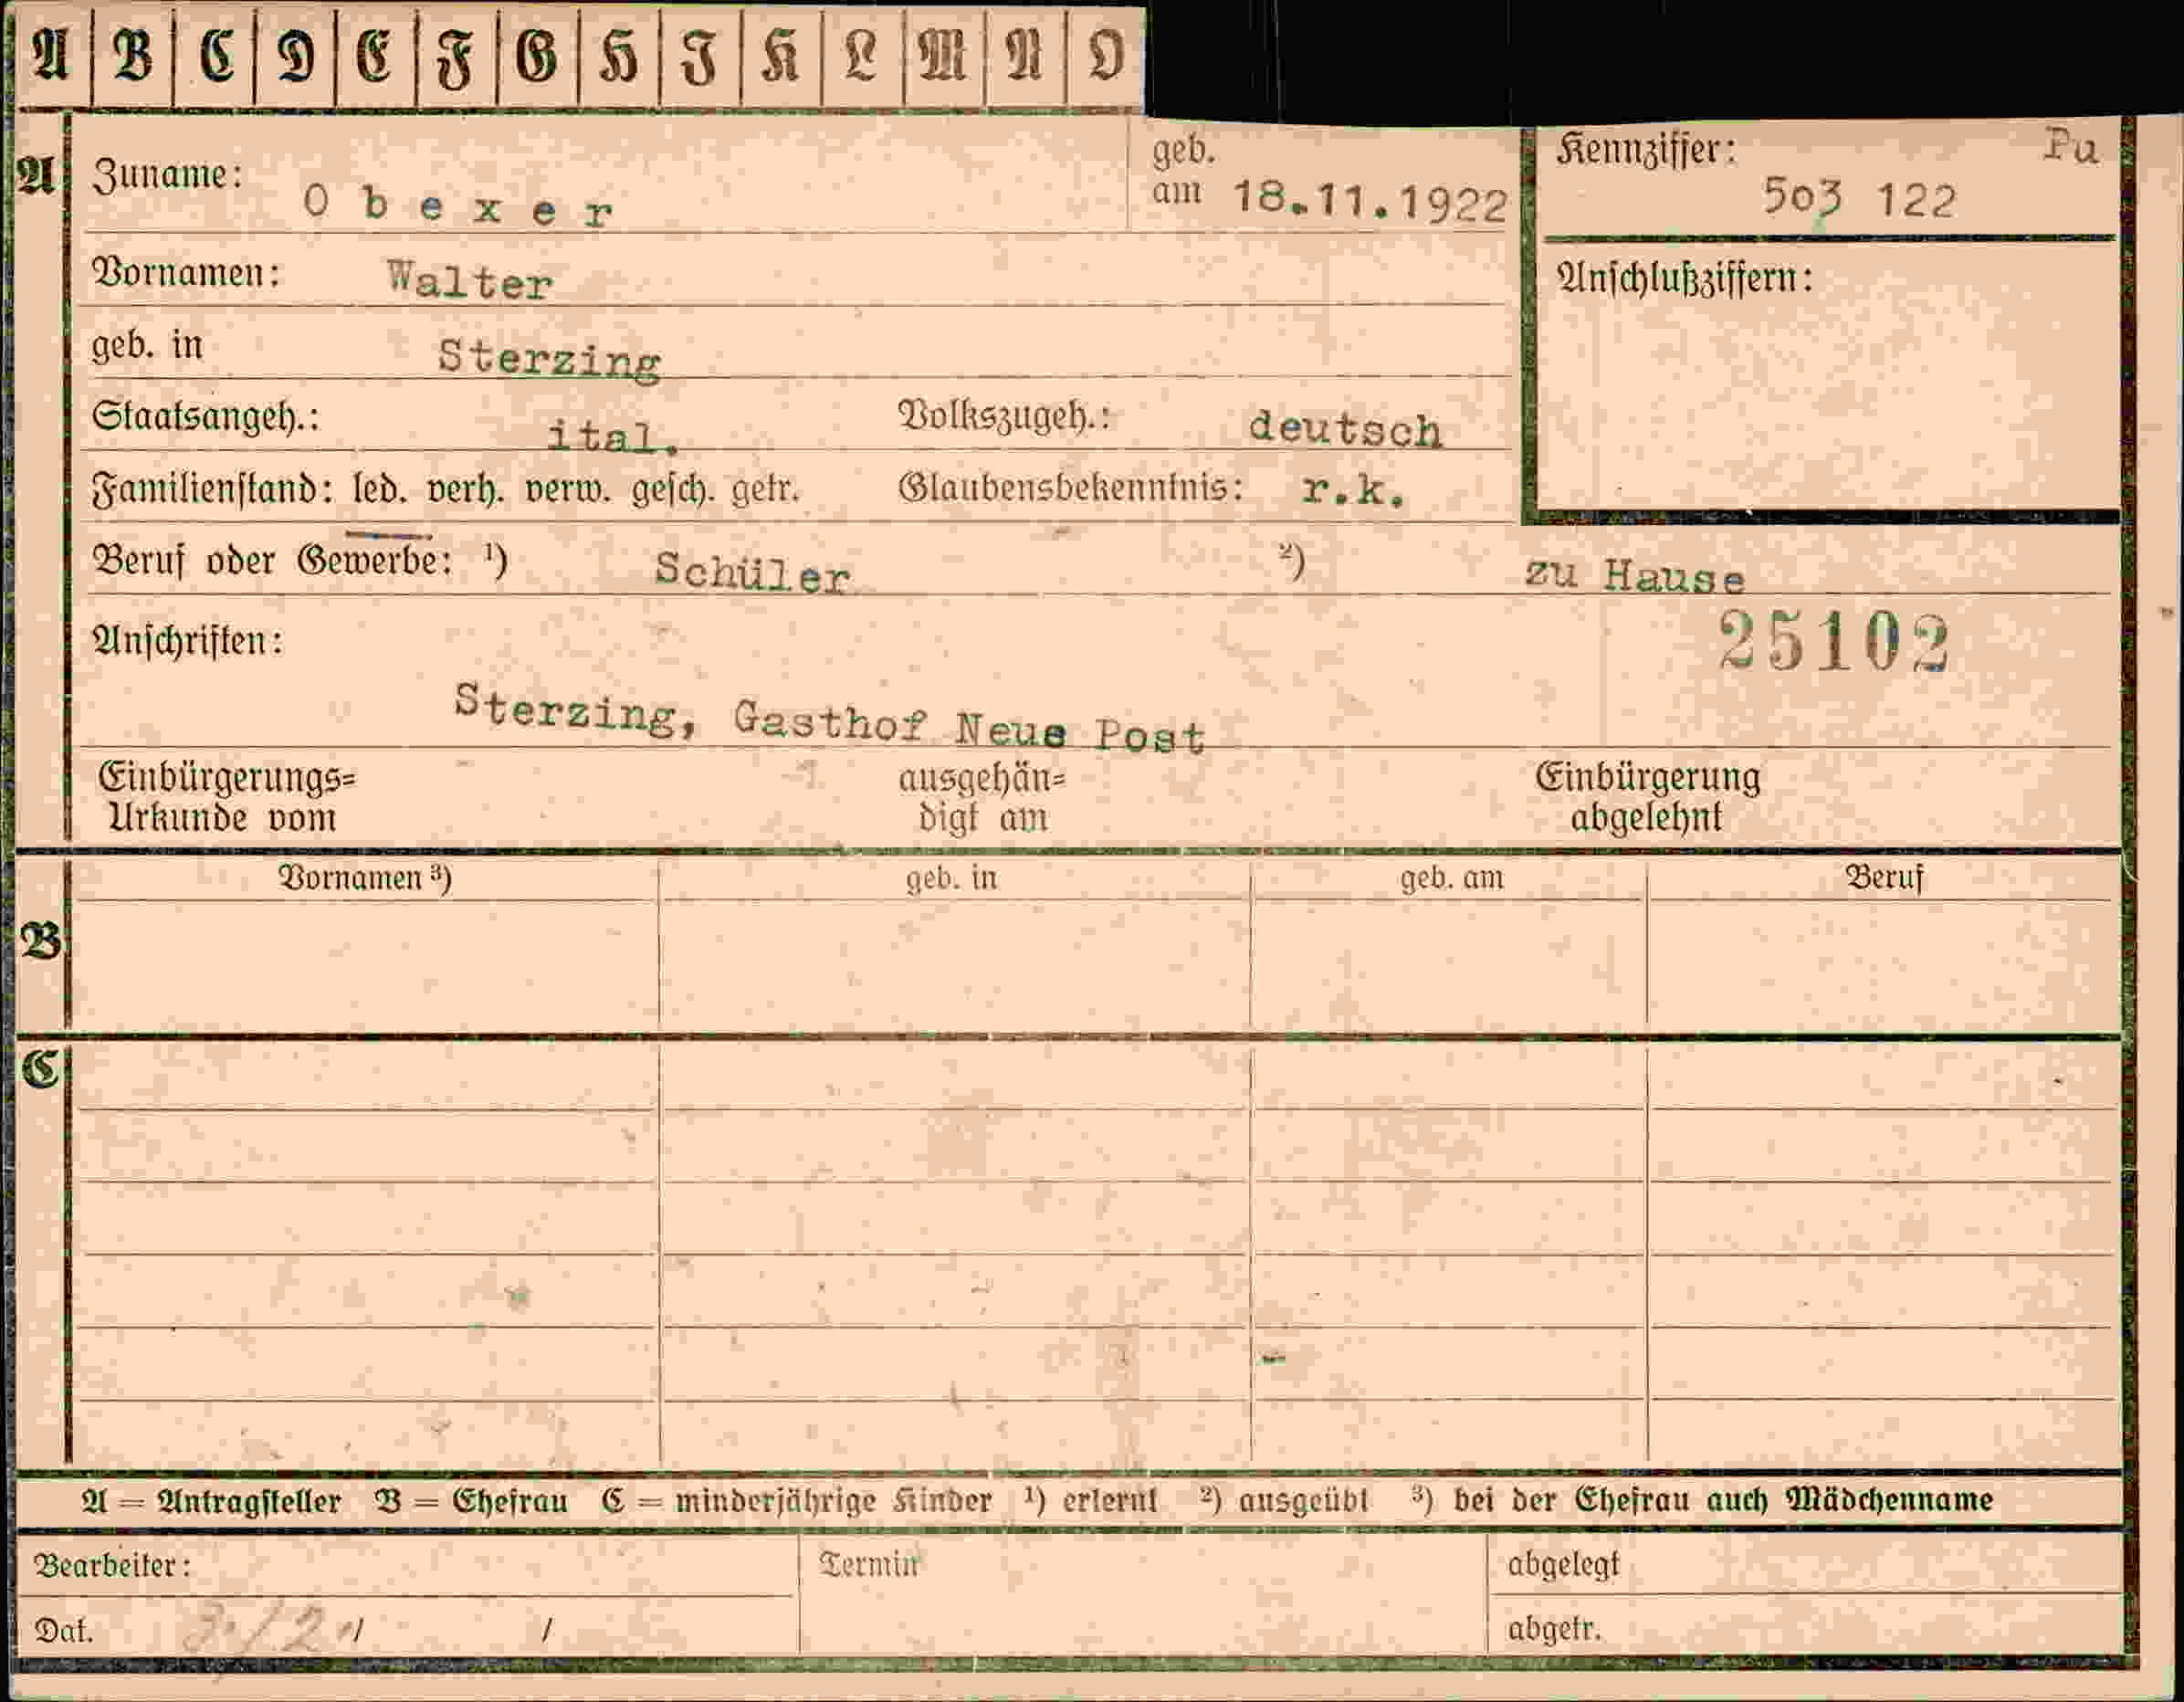 A B C D E F G H J K L M N O
A Zuname: Obexer geb. am 18.11.1922 Kennziffer: Pu 503 122
Vornamen: Walter Anschlußziffern:
geb. in Sterzing
Staatsangeh.: ital. Volkszugeh.: deutsch
Familienstand: led. verh. verw. gesch. getr. Glaubensbekenntnis: r.k.
Beruf oder Gewerbe: ¹) Schüler ²) zu Hause
Anschriften: 25102
Sterzing, Gasthof Neue Post
Einbürgerungs= ausgehän= Einbürgerung
Urkunde vom digt am abgelehnt
Vornamen ³) geb. in geb. am Beruf
B
C
A = Antragsteller B = Ehefrau C = minderjährige Kinder ¹) erlernt ²) ausgeübt ³) bei der Ehefrau auch Mädchenname
Bearbeiter: Termin abgelegt
Dat. / / abgetr.